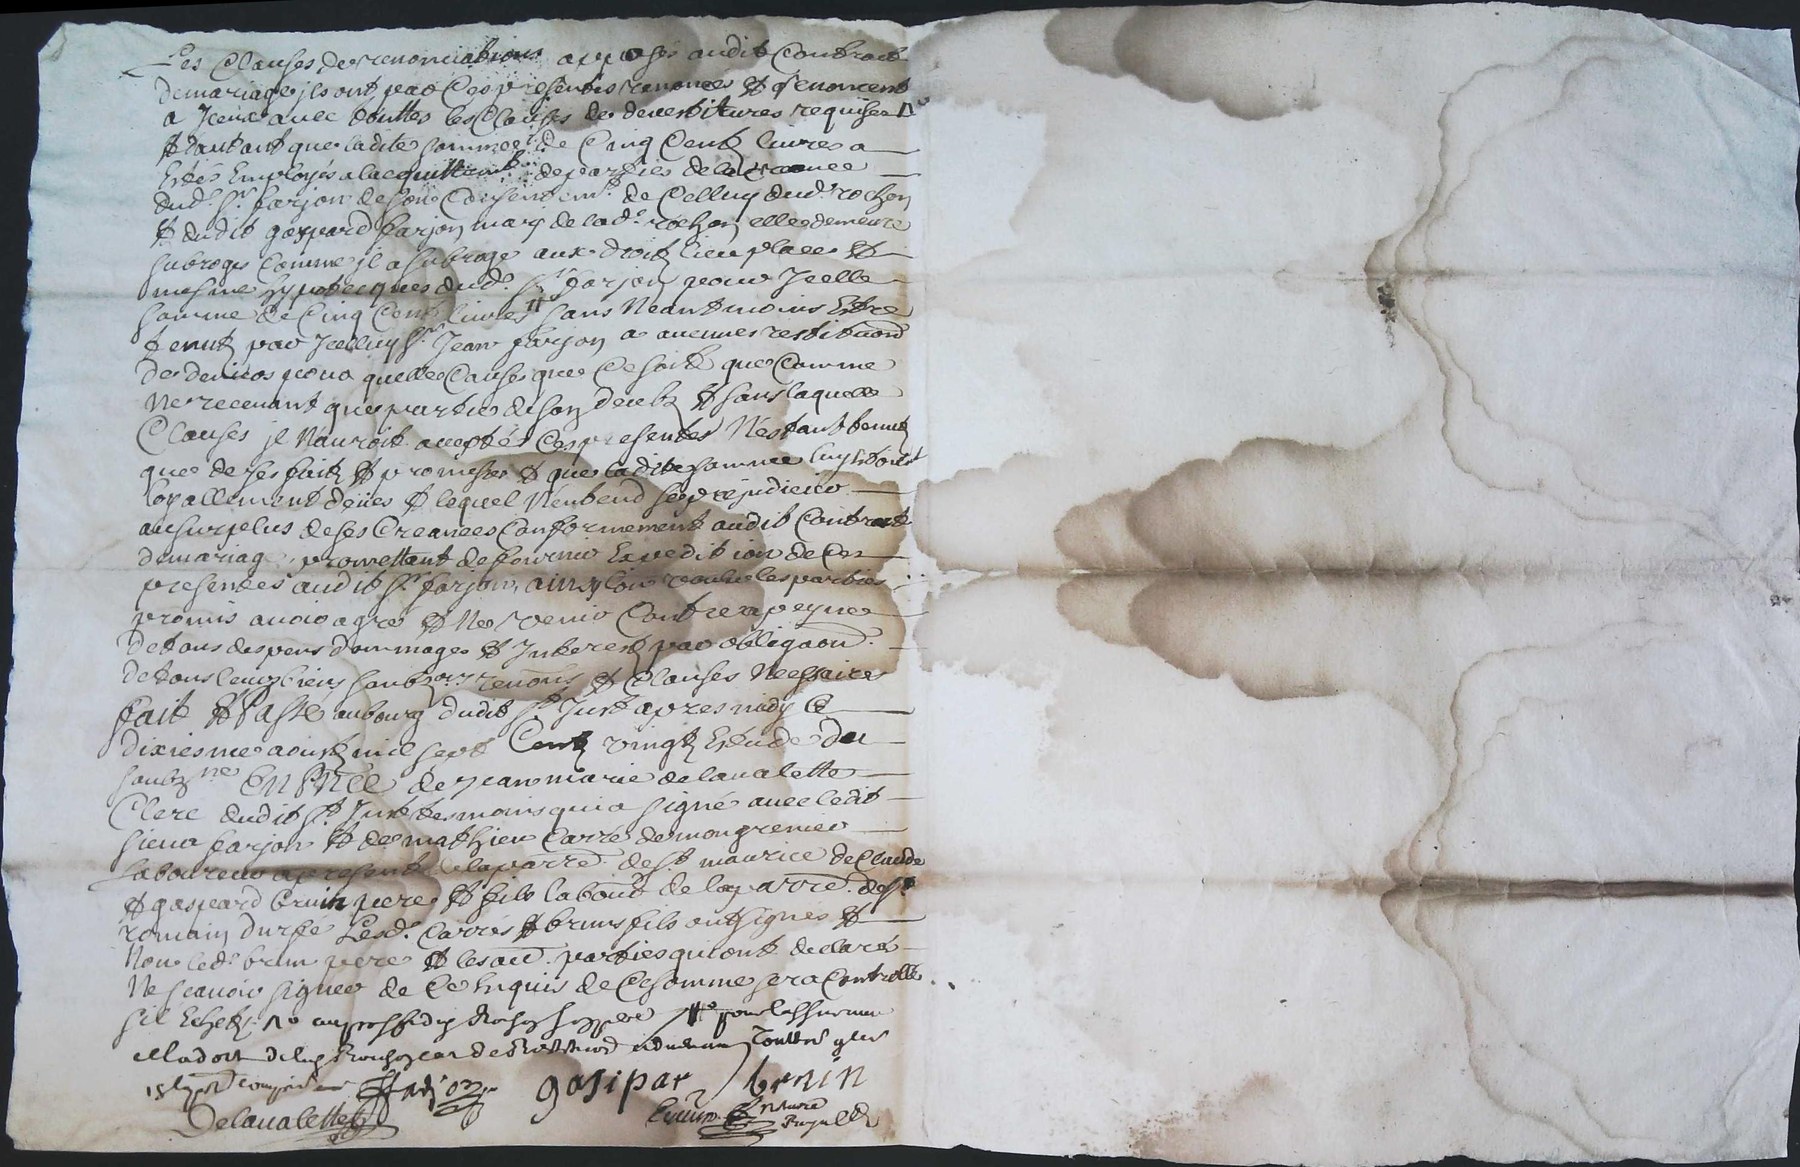 Les Clauses de renonciations apposés audit Contract
de mariage ils ont par Ces presentes renoncés et renoncent
a Iceux avec touttes les Clauses de devestitures requises
et dautant que ladite somme de Cinq Cent livres a
Estés Employés a lacquittemt. de parties de la creance
dud. Sr. farjon de son Consentemt. de Celluy dud. rochon
et dudit gaspard farjon mary de lad. rochon elle demeure
subrogée Comme il a subrogé aux droitz lieu place et
mesme hypotecques dud. Sr. farjon pour Icelle
somme de Cinq Cent livres sans Neantmoins Estre
tenutz par Icelluy Sr. Jean farjon a aucunes restitution
de deniers pour quelle Cause que Ce soit que Comme
Ne recevant que partie de son deub et sans laquelle
Clauses il Nauroit acceptés Ces presentes Nestant tenutz
que de ses faitz et promesses et que ladite somme luy Estoit
loyallement deües et lequel Nentend se prejudicier
au surplus de ses Creances Conformement audit Contract
de mariage promettant de fournir Expedition de Ces
presentes audit Sr. farjon, ainsy lont voulu les parties
promis avoir agré et Ne venir Contre a peyne
de tous despens dommages et Interestz par obligaon.
de tous leurs biens soubzons renons et Clauses Necessaires
fait et Passé au bourg dudit St. Just apres midy Ce
dixiesme aoust mil sept Centz vingtz Estude du
soubzne. EN PNCE de Jean marie delavalette
Clerc dudit St. Just tesmoins qui a signé avec ledit
sieur farjon et de mathieu Carré de mongrenier
laboureur a present de la parre. de St. maurice de Claude
et gaspard brun pere et fils labour. de la parre. de St.
romain durfé Lesd. Carrés et bruns fils ont signés et
Non led. brun pere et les au. parties qui ont declaré
Ne scavoir signer de Ce Enquis de Ce somme sera Controllé
sil Echetz
farjon gasipar brnin
Delavalette Notaire Royal